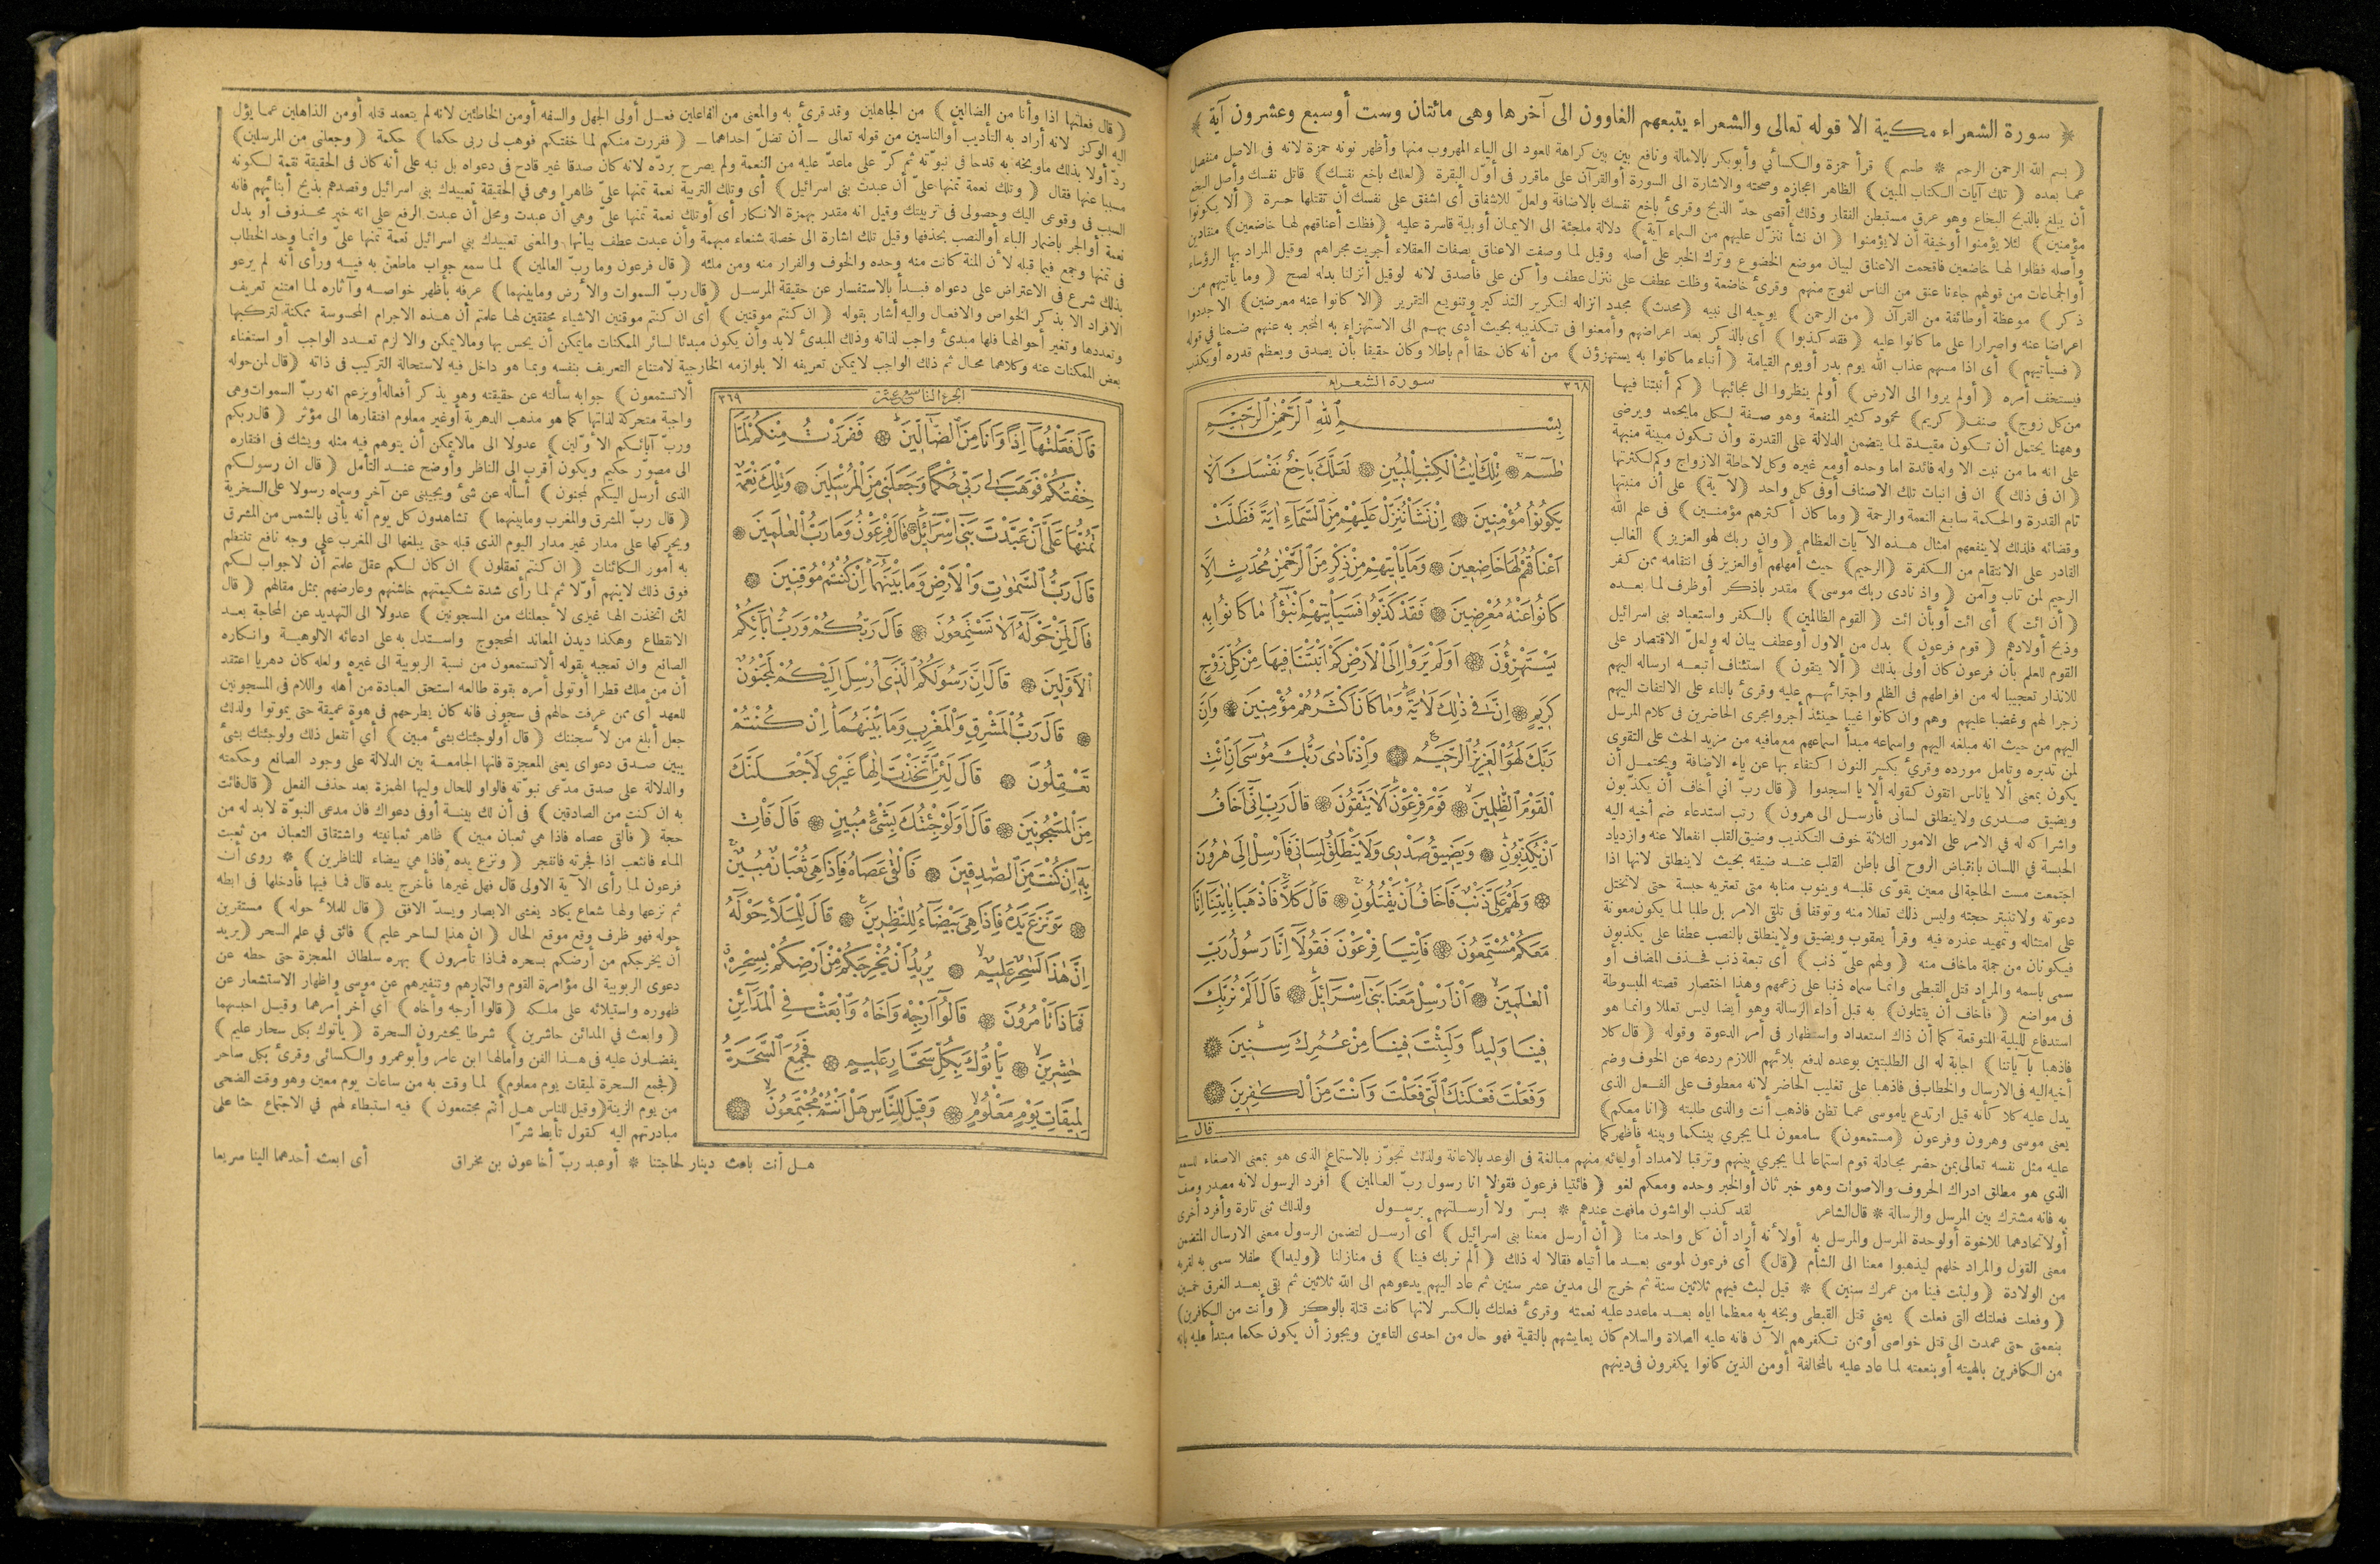 ﴿ سورة الشعراء مكية الا قوله تعالى والشعراء يتبعهم الغاوون الى آخرها وهى مائتان وست أوسبع وعشرون آية ﴾
﴿ بسم الله الرحمن الرحيم * طسم ﴾ قرأ حمزة والكسائى وأبوبكر بالامالة ونافع بين بين كراهة للعود الى الياء المهروب منها وأظهر نونه حمزة لانه فى الاصل منفصل
عما بعده ﴿ تلك آيات الكتاب المبين ﴾ الظاهر اعجازه وصحته والاشارة الى السورة أوالقرآن على ماقرر فى أوّل البقرة ﴿ لعلك باخع نفسك ﴾ قاتل نفسك وأصل البخع
أن يبلغ بالذبح البخاع وهو عرق مستبطن الفقار وذلك أقصى حدّ الذبح وقرئ باخع نفسك بالاضافة ولعلّ للاشفاق أى اشفق على نفسك أن تقتلها حسرة ﴿ ألا يكونوا
مؤمنين ﴾ لئلا يؤمنوا أوخيفة أن لايؤمنوا ﴿ ان نشأ ننزّل عليهم من السماء آية ﴾ دلالة ملجئة الى الايمان أوبلية قاسرة عليه ﴿ فظلت أعناقهم لها خاضعين ﴾ منقادين
وأصله فظلوا لها خاضعين فاقحمت الاعناق لبيان موضع الخضوع وترك الخبر على أصله وقيل لما وصفت الاعناق بصفات العقلاء أجريت مجراهم وقيل المراد بها الرؤساء
أوالجماعات من قولهم جاءنا عنق من الناس لفوج منهم وقرئ خاضعة وظلت عطف على ننزل عطف وأكن على فأصدق لانه لوقيل أنزلنا بدله لصح ﴿ وما يأتيهم من
ذكر ﴾ موعظة أوطائفة من القرآن ﴿ من الرحمن ﴾ يوحيه الى نبيه ﴿ محدث ﴾ مجدد انزاله لتكرير التذكير وتنويع التقرير ﴿ الا كانوا عنه معرضين ﴾ الا جددوا
اعراضا عنه واصرارا على ما كانوا عليه ﴿ فقد كذبوا ﴾ أى بالذكر بعد اعراضهم وأمعنوا فى تكذيبه بحيث أدى بهم الى الاستهزاء به المخبر به عنهم ضمنا فى قوله
﴿ فسيأتيهم ﴾ أى اذا مسهم عذاب الله يوم بدر أويوم القيامة ﴿ أنباء ما كانوا به يستهزؤن ﴾ من أنه كان حقا أم باطلا وكان حقيقا بأن يصدق ويعظم قدره أويكذب
فيستخف أمره ﴿ أولم يروا الى الارض ﴾ أولم ينظروا الى عجائبها ﴿ كم أنبتنا فيها
من كل زوج ﴾ صنف ﴿ كريم ﴾ محمود كثير المنفعة وهو صفة لكل مايحمد ويرضى
وههنا يحتمل أن تكون مقيدة لما يتضمن الدلالة على القدرة وأن تكون مبينة منبهة
على انه ما من نبت الا وله فائدة اما وحده أومع غيره وكل لاحاطة الازواج وكم لكثرتها
﴿ ان فى ذلك ﴾ ان فى انبات تلك الاصناف أوفى كل واحد ﴿ لآية ﴾ على أن منبتها
تام القدرة والحكمة سابغ النعمة والرحمة ﴿ وما كان أكثرهم مؤمنين ﴾ فى علم الله
وقضائه فلذلك لاينفعهم امثال هذه الآيات العظام ﴿ وان ربك لهو العزيز ﴾ الغالب
القادر على الانتقام من الكفرة ﴿ الرحيم ﴾ حيث أمهلهم أوالعزيز فى انتقامه ممن كفر
الرحيم لمن تاب وآمن ﴿ واذ نادى ربك موسى ﴾ مقدر باذكر أوظرف لما بعده
﴿ أن ائت ﴾ أى ائت أوبأن ائت ﴿ القوم الظالمين ﴾ بالكفر واستعباد بنى اسرائيل
وذبح أولادهم ﴿ قوم فرعون ﴾ بدل من الاول أوعطف بيان له ولعلّ الاقتصار على
القوم للعلم بأن فرعون كان أولى بذلك ﴿ ألا يتقون ﴾ استئناف أتبعه ارساله اليهم
للانذار تعجيبا له من افراطهم فى الظلم واجترائهم عليه وقرئ بالتاء على الالتفات اليهم
زجرا لهم وغضبا عليهم وهم وان كانوا غيبا حينئذ أجروا مجرى الحاضرين فى كلام المرسل
اليهم من حيث انه مبلغه اليهم واسماعه مبدأ اسماعهم مع مافيه من مزيد الحث على التقوى
لمن تدبره وتأمل مورده وقرئ بكسر النون اكتفاء بها عن ياء الاضافة ويحتمل أن
يكون بمعنى ألا ياناس اتقون كقوله ألا يا اسجدوا ﴿ قال ربّ انى أخاف أن يكذّبون
ويضيق صدرى ولاينطلق لسانى فأرسل الى هرون ﴾ رتب استدعاء ضم أخيه اليه
واشراكه له فى الامر على الامور الثلاثة خوف التكذيب وضيق القلب انفعالا عنه وازدياد
الحبسة فى اللسان بانقباض الروح الى باطن القلب عند ضيقه بحيث لاينطلق لانها اذا
اجتمعت مست الحاجة الى معين يقوّى قلبه وينوب منابه متى تعتريه حبسة حتى لاتختل
دعوته ولاتنبتر حجته وليس ذلك تعللا منه وتوقفا فى تلقى الامر بل طلبا لما يكون معونة
على امتثاله وتمهيد عذره فيه وقرأ يعقوب ويضيق ولاينطلق بالنصب عطفا على يكذبون
فيكونان من جملة ماخاف منه ﴿ ولهم علىّ ذنب ﴾ أى تبعة ذنب فحذف المضاف أو
سمى باسمه والمراد قتل القبطى وانما سماه ذنبا على زعمهم وهذا اختصار قصته المبسوطة
فى مواضع ﴿ فأخاف أن يقتلون ﴾ به قبل أداء الرسالة وهو أيضا ليس تعللا وانما هو
استدفاع للبلية المتوقعة كما أن ذاك استعداد واستظهار فى أمر الدعوة وقوله ﴿ قال كلا
فاذهبا بآياتنا ﴾ اجابة له الى الطلبتين بوعده لدفع بلائهم اللازم ردعه عن الخوف وضم
أخيه اليه فى الارسال والخطاب فى فاذهبا على تغليب الحاضر لانه معطوف على الفعل الذى
يدل عليه كلا كأنه قيل ارتدع ياموسى عما تظن فاذهب أنت والذى طلبته ﴿ انا معكم ﴾
يعنى موسى وهرون وفرعون ﴿ مستمعون ﴾ سامعون لما يجرى بينكما وبينه فأظهركما
عليه مثل نفسه تعالى بمن حضر مجادلة قوم استماعا لما يجرى بينهم وترقبا لامداد أوليائه منهم مبالغة فى الوعد بالاعانة ولذلك تجوّز بالاستماع الذى هو بمعنى الاصغاء للسمع
الذى هو مطلق ادراك الحروف والاصوات وهو خبر ثان أوالخبر وحده ومعكم لغو ﴿ فائتيا فرعون فقولا انا رسول ربّ العالمين ﴾ أفرد الرسول لانه مصدر وصف
به فانه مشترك بين المرسل والرسالة * قال الشاعر لقد كذب الواشون مافهت عندهم * بسرّ ولا أرسلتهم برسول ولذلك ثنى تارة وأفرد أخرى
أولاتحادهما للاخوة أولوحدة المرسل والمرسل به أولأنه أراد أن كل واحد منا ﴿ أن أرسل معنا بنى اسرائيل ﴾ أى أرسل لتضمن الرسول معنى الارسال المتضمن
معنى القول والمراد خلهم ليذهبوا معنا الى الشأم ﴿ قال ﴾ أى فرعون لموسى بعد ما أتياه فقالا له ذلك ﴿ ألم نربك فينا ﴾ فى منازلنا ﴿ وليدا ﴾ طفلا سمى به لقربه
من الولادة ﴿ ولبثت فينا من عمرك سنين ﴾ * قيل لبث فيهم ثلاثين سنة ثم خرج الى مدين عشر سنين ثم عاد اليهم يدعوهم الى الله ثلاثين ثم بقى بعد الغرق خمسين
﴿ وفعلت فعلتك التى فعلت ﴾ يعنى قتل القبطى وبخه به معظما اياه بعد ماعدد عليه نعمته وقرئ فعلتك بالكسر لانها كانت قتلة بالوكز ﴿ وأنت من الكافرين ﴾
بنعمتى حتى عمدت الى قتل خواصى أوممن تكفرهم الآن فانه عليه الصلاة والسلام كان يعايشهم بالتقية فهو حال من احدى التاءين ويجوز أن يكون حكما مبتدأ عليه بانه
من الكافرين بالهيته أوبنعمته لما عاد عليه بالمخالفة أومن الذين كانوا يكفرون فى دينهم
٣٦٨ سورة الشعراء
بِسْمِ اللهِ الرَّحْمٰنِ الرَّحِيمِ
طٰسٓمٓ ۞ تِلْكَ اٰيَاتُ الْكِتَابِ الْمُبِينِ ۞ لَعَلَّكَ بَاخِعٌ نَفْسَكَ اَلَّا
يَكُونُوا مُؤْمِنِينَ ۞ اِنْ نَشَأْ نُنَزِّلْ عَلَيْهِمْ مِنَ السَّمَاءِ اٰيَةً فَظَلَّتْ
اَعْنَاقُهُمْ لَهَا خَاضِعِينَ ۞ وَمَا يَأْتِيهِمْ مِنْ ذِكْرٍ مِنَ الرَّحْمٰنِ مُحْدَثٍ اِلَّا
كَانُوا عَنْهُ مُعْرِضِينَ ۞ فَقَدْ كَذَّبُوا فَسَيَأْتِيهِمْ اَنْبٰٓؤُا مَا كَانُوا بِهِ
يَسْتَهْزِؤُنَ ۞ اَوَلَمْ يَرَوْا اِلَى الْاَرْضِ كَمْ اَنْبَتْنَا فِيهَا مِنْ كُلِّ زَوْجٍ
كَرِيمٍ ۞ اِنَّ فِى ذٰلِكَ لَاٰيَةً وَمَا كَانَ اَكْثَرُهُمْ مُؤْمِنِينَ ۞ وَاِنَّ
رَبَّكَ لَهُوَ الْعَزِيزُ الرَّحِيمُ ۞ وَاِذْ نَادٰى رَبُّكَ مُوسٰى اَنِ ائْتِ
الْقَوْمَ الظَّالِمِينَ ۞ قَوْمَ فِرْعَوْنَ اَلَا يَتَّقُونَ ۞ قَالَ رَبِّ اِنِّى اَخَافُ
اَنْ يُكَذِّبُونِ ۞ وَيَضِيقُ صَدْرِى وَلَا يَنْطَلِقُ لِسَانِى فَاَرْسِلْ اِلٰى هٰرُونَ
۞ وَلَهُمْ عَلَىَّ ذَنْبٌ فَاَخَافُ اَنْ يَقْتُلُونِ ۞ قَالَ كَلَّا فَاذْهَبَا بِاٰيَاتِنَا اِنَّا
مَعَكُمْ مُسْتَمِعُونَ ۞ فَاْتِيَا فِرْعَوْنَ فَقُولَا اِنَّا رَسُولُ رَبِّ
الْعَالَمِينَ ۞ اَنْ اَرْسِلْ مَعَنَا بَنِى اِسْرَائِلَ ۞ قَالَ اَلَمْ نُرَبِّكَ
فِينَا وَلِيدًا وَلَبِثْتَ فِينَا مِنْ عُمُرِكَ سِنِينَ ۞
وَفَعَلْتَ فَعْلَتَكَ الَّتِى فَعَلْتَ وَاَنْتَ مِنَ الْكَافِرِينَ ۞
قال
﴿ قال فعلتها اذا وأنا من الضالين ﴾ من الجاهلين وقد قرئ به والمعنى من الفاعلين فعل أولى الجهل والسفه أومن الخاطئين لانه لم يتعمد قتله أومن الذاهلين عما يؤل
اليه الوكز لانه أراد به التأديب أوالناسين من قوله تعالى ــ أن تضلّ احداهما ــ ﴿ ففررت منكم لما خفتكم فوهب لى ربى حكما ﴾ حكمة ﴿ وجعلنى من المرسلين ﴾
ردّ أولا بذلك ماوبخه به قدحا فى نبوّته ثم كرّ على ماعدّ عليه من النعمة ولم يصرح بردّه لانه كان صدقا غير قادح فى دعواه بل نبه على أنه كان فى الحقيقة نقمة لكونه
مسببا عنها فقال ﴿ وتلك نعمة تمنها علىّ أن عبدت بنى اسرائيل ﴾ أى وتلك التربية نعمة تمنها علىّ ظاهرا وهى فى الحقيقة تعبيدك بنى اسرائيل وقصدهم بذبح أبنائهم فانه
السبب فى وقوعى اليك وحصولى فى تربيتك وقيل انه مقدر بهمزة الانكار أى أوتلك نعمة تمنها علىّ وهى أن عبدت ومحل أن عبدت الرفع على انه خبر محذوف أو بدل
نعمة أوالجر باضمار الباء أوالنصب بحذفها وقيل تلك اشارة الى خصلة شنعاء مبهمة وأن عبدت عطف بيانها والمعنى تعبيدك بنى اسرائيل نعمة تمنها علىّ وانما وحد الخطاب
فى تمنها وجمع فيما قبله لأن المنة كانت منه وحده والخوف والفرار منه ومن ملئه ﴿ قال فرعون وما ربّ العالمين ﴾ لما سمع جواب ماطعن به فيه ورأى أنه لم يرعو
بذلك شرع فى الاعتراض على دعواه فبدأ بالاستفسار عن حقيقة المرسل ﴿ قال ربّ السموات والأرض ومابينهما ﴾ عرفه بأظهر خواصه وآثاره لما امتنع تعريف
الافراد الا بذكر الخواص والافعال واليه أشار بقوله ﴿ ان كنتم موقنين ﴾ أى ان كنتم موقنين الاشياء محققين لها علمتم أن هذه الاجرام المحسوسة ممكنة لتركبها
وتعددها وتغير أحوالها فلها مبدئ واجب لذاته وذلك المبدئ لابد وأن يكون مبدئا لسائر الممكنات مايمكن أن يحس بها ومالايمكن والا لزم تعدد الواجب أو استغناء
بعض الممكنات عنه وكلاهما محال ثم ذلك الواجب لايمكن تعريفه الا بلوازمه الخارجية لامتناع التعريف بنفسه وبما هو داخل فيه لاستحالة التركيب فى ذاته ﴿ قال لمن حوله
ألاتستمعون ﴾ جوابه سألته عن حقيقته وهو يذكر أفعاله أويزعم انه ربّ السموات وهى
واجبة متحركة لذاتها كما هو مذهب الدهرية أوغير معلوم افتقارها الى مؤثر ﴿ قال ربكم
وربّ آبائكم الأوّلين ﴾ عدولا الى مالايمكن أن يتوهم فيه مثله ويشك فى افتقاره
الى مصوّر حكيم ويكون أقرب الى الناظر وأوضح عند التأمل ﴿ قال ان رسولكم
الذى أرسل اليكم لمجنون ﴾ أسأله عن شئ ويجيبنى عن آخر وسماه رسولا على السخرية
﴿ قال ربّ المشرق والمغرب ومابينهما ﴾ تشاهدون كل يوم أنه يأتى بالشمس من المشرق
ويحركها على مدار غير مدار اليوم الذى قبله حتى يبلغها الى المغرب على وجه نافع تنتظم
به أمور الكائنات ﴿ ان كنتم تعقلون ﴾ ان كان لكم عقل علمتم أن لاجواب لكم
فوق ذلك لاينهم أوّلا ثم لما رأى شدة شكيمتهم خاشنهم وعارضهم بمثل مقالهم ﴿ قال
لئن اتخذت الها غيرى لأجعلنك من المسجونين ﴾ عدولا الى التهديد عن المحاجة بعد
الانقطاع وهكذا ديدن المعاند المحجوج واستدل به على ادعائه الالوهية وانكاره
الصانع وان تعجبه بقوله ألاتستمعون من نسبة الربوبية الى غيره ولعله كان دهريا اعتقد
أن من ملك قطرا أوتولى أمره بقوة طالعه استحق العبادة من أهله واللام فى المسجونين
للعهد أى ممن عرفت حالهم فى سجونى فانه كان يطرحهم فى هوة عميقة حتى يموتوا ولذلك
جعل أبلغ من لأسجننك ﴿ قال أولوجئتك بشئ مبين ﴾ أى أتفعل ذلك ولوجئتك بشئ
يبين صدق دعواى يعنى المعجزة فانها الجامعة بين الدلالة على وجود الصانع وحكمته
والدلالة على صدق مدّعى نبوّته فالواو للحال وليها الهمزة بعد حذف الفعل ﴿ قال فائت
به ان كنت من الصادقين ﴾ فى أن لك بينة أوفى دعواك فان مدعى النبوّة لابد له من
حجة ﴿ فألقى عصاه فاذا هى ثعبان مبين ﴾ ظاهر ثعبانيته واشتقاق الثعبان من ثعبت
الماء فانثعب اذا فجرته فانفجر ﴿ ونزع يده فاذا هى بيضاء للناظرين ﴾ * روى أن
فرعون لما رأى الآية الاولى قال فهل غيرها فأخرج يده قال فما فيها فأدخلها فى ابطه
ثم نزعها ولها شعاع يكاد يغشى الابصار ويسدّ الافق ﴿ قال للملأ حوله ﴾ مستقرين
حوله فهو ظرف وقع موقع الحال ﴿ ان هذا لساحر عليم ﴾ فائق فى علم السحر ﴿ يريد
أن يخرجكم من أرضكم بسحره فماذا تأمرون ﴾ بهره سلطان المعجزة حتى حطه عن
دعوى الربوبية الى مؤامرة القوم وائتمارهم وتنفيرهم عن موسى واظهار الاستشعار عن
ظهوره واستيلائه على ملكه ﴿ قالوا أرجه وأخاه ﴾ أى أخر أمرهما وقيل احبسهما
﴿ وابعث فى المدائن حاشرين ﴾ شرطا يحشرون السحرة ﴿ يأتوك بكل سحار عليم ﴾
يفضلون عليه فى هذا الفن وأمالها ابن عامر وأبوعمرو والكسائى وقرئ بكل ساحر
﴿ فجمع السحرة لميقات يوم معلوم ﴾ لما وقت به من ساعات يوم معين وهو وقت الضحى
من يوم الزينة ﴿ وقيل للناس هل أنتم مجتمعون ﴾ فيه استبطاء لهم فى الاجتماع حثا على
مبادرتهم اليه كقول تأبط شرّا
هل أنت باعث دينار لحاجتنا * أوعبد ربّ أخا عون بن مخراق أى ابعث أحدهما الينا سريعا
الجزء التاسع عشر ٣٦٩
قَالَ فَعَلْتُهَا اِذًا وَاَنَا مِنَ الضَّالِّينَ ۞ فَفَرَرْتُ مِنْكُمْ لَمَّا
خِفْتُكُمْ فَوَهَبَ لِى رَبِّى حُكْمًا وَجَعَلَنِى مِنَ الْمُرْسَلِينَ ۞ وَتِلْكَ نِعْمَةٌ
تَمُنُّهَا عَلَىَّ اَنْ عَبَّدْتَ بَنِى اِسْرَائِلَ ۞ قَالَ فِرْعَوْنُ وَمَا رَبُّ الْعَالَمِينَ ۞
قَالَ رَبُّ السَّمٰوَاتِ وَالْاَرْضِ وَمَا بَيْنَهُمَا اِنْ كُنْتُمْ مُوقِنِينَ ۞
قَالَ لِمَنْ حَوْلَهُ اَلَا تَسْتَمِعُونَ ۞ قَالَ رَبُّكُمْ وَرَبُّ اٰبَائِكُمُ
الْاَوَّلِينَ ۞ قَالَ اِنَّ رَسُولَكُمُ الَّذِى اُرْسِلَ اِلَيْكُمْ لَمَجْنُونٌ
۞ قَالَ رَبُّ الْمَشْرِقِ وَالْمَغْرِبِ وَمَا بَيْنَهُمَا اِنْ كُنْتُمْ
تَعْقِلُونَ ۞ قَالَ لَئِنِ اتَّخَذْتَ اِلٰهًا غَيْرِى لَاَجْعَلَنَّكَ
مِنَ الْمَسْجُونِينَ ۞ قَالَ اَوَلَوْ جِئْتُكَ بِشَىْءٍ مُبِينٍ ۞ قَالَ فَاْتِ
بِهِ اِنْ كُنْتَ مِنَ الصَّادِقِينَ ۞ فَاَلْقٰى عَصَاهُ فَاِذَا هِىَ ثُعْبَانٌ مُبِينٌ
۞ وَنَزَعَ يَدَهُ فَاِذَا هِىَ بَيْضَاءُ لِلنَّاظِرِينَ ۞ قَالَ لِلْمَلَأِ حَوْلَهُ
اِنَّ هٰذَا لَسَاحِرٌ عَلِيمٌ ۞ يُرِيدُ اَنْ يُخْرِجَكُمْ مِنْ اَرْضِكُمْ بِسِحْرِهِ
فَمَاذَا تَأْمُرُونَ ۞ قَالُوا اَرْجِهْ وَاَخَاهُ وَابْعَثْ فِى الْمَدَائِنِ
حَاشِرِينَ ۞ يَأْتُوكَ بِكُلِّ سَحَّارٍ عَلِيمٍ ۞ فَجُمِعَ السَّحَرَةُ
لِمِيقَاتِ يَوْمٍ مَعْلُومٍ ۞ وَقِيلَ لِلنَّاسِ هَلْ اَنْتُمْ مُجْتَمِعُونَ ۞